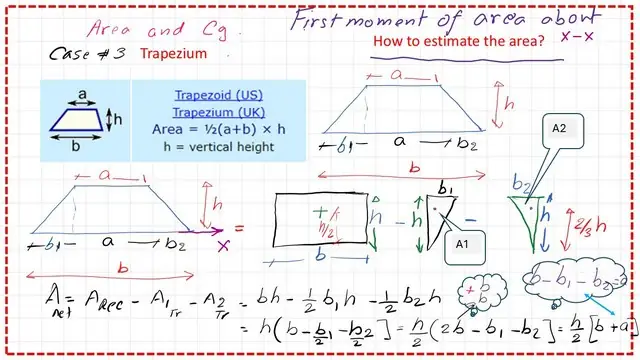 Area and Cg.
First moment of area about
x-x
Case #3 Trapezium
How to estimate the area?
a
h
b
Trapezoid (US)
Trapezium (UK)
Area = ½(a+b) × h
h = vertical height
a
h
b1 a b2
b
A2
a
h
b1 a b2 x
b
=
h/2
h
b
-
b1
h
A1
-
b2
h
2/3 h
A net = A Rec - A1 Tr - A2 Tr = bh - 1/2 b1 h - 1/2 b2 h
+b
b
b - b1 - b2 = a
= h(b - b1/2 - b2/2) = h/2 (2b - b1 - b2) = h/2 [b + a]